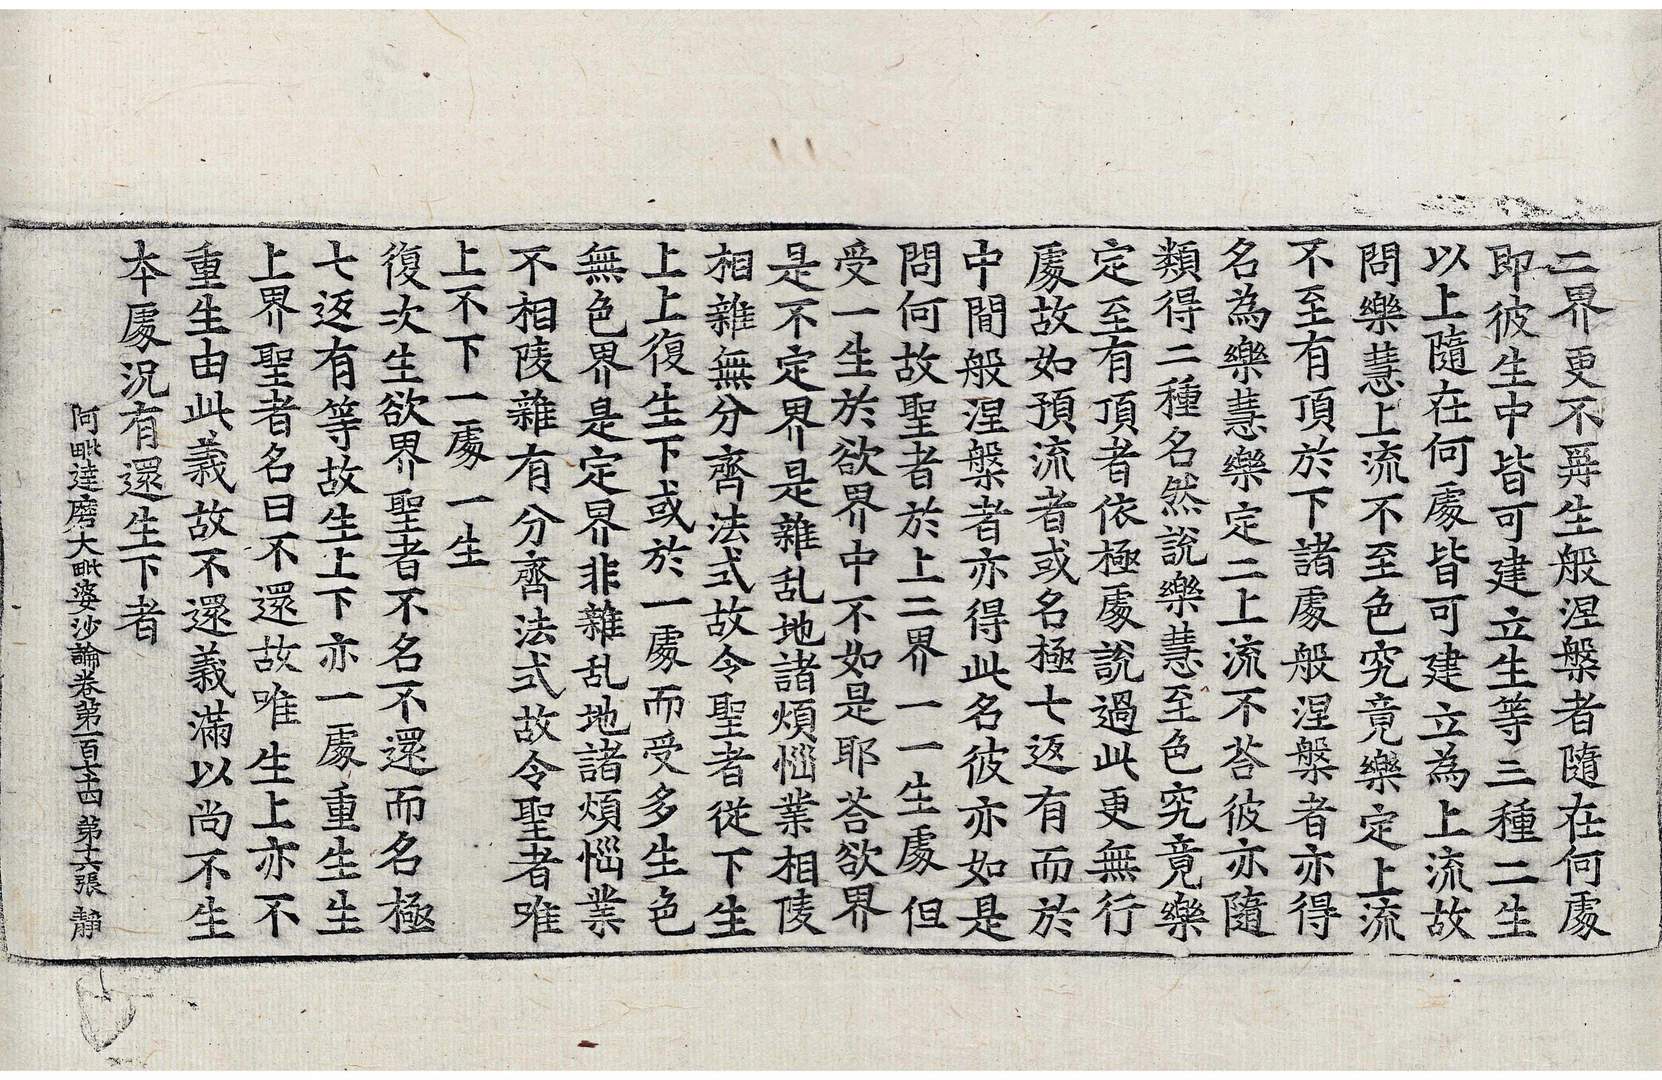 二界更不再生般涅槃者隨在何處
即彼生中皆可建立生等三種二生
以上隨在何處皆可建立為上流故
問樂慧上流不至色究竟樂定上流
不至有頂於下諸處般涅槃者亦得
名為樂慧樂定二上流不荅彼亦隨
類得二種名然說樂慧至色究竟樂
定至有頂者依極處說過此更無行
處故如預流者或名極七返有而於
中間般涅槃者亦得此名彼亦如是
問何故聖者於上二界一一生處但
受一生於欲界中不如是耶荅欲界
是不定界是雜乱地諸煩惱業相陵
相雜無分齊法式故令聖者從下生
上上復生下或於一處而受多生色
無色界是定界非雜乱地諸煩惱業
不相陵雜有分齊法式故令聖者唯
上不下一處一生
復次生欲界聖者不名不還而名極
七返有等故生上下亦一處重生生
上界聖者名曰不還故唯生上亦不
重生由此義故不還義滿以尚不生
本處況有還生下者
阿毗達磨大毗婆沙論卷第一百七十四 第十六張 靜